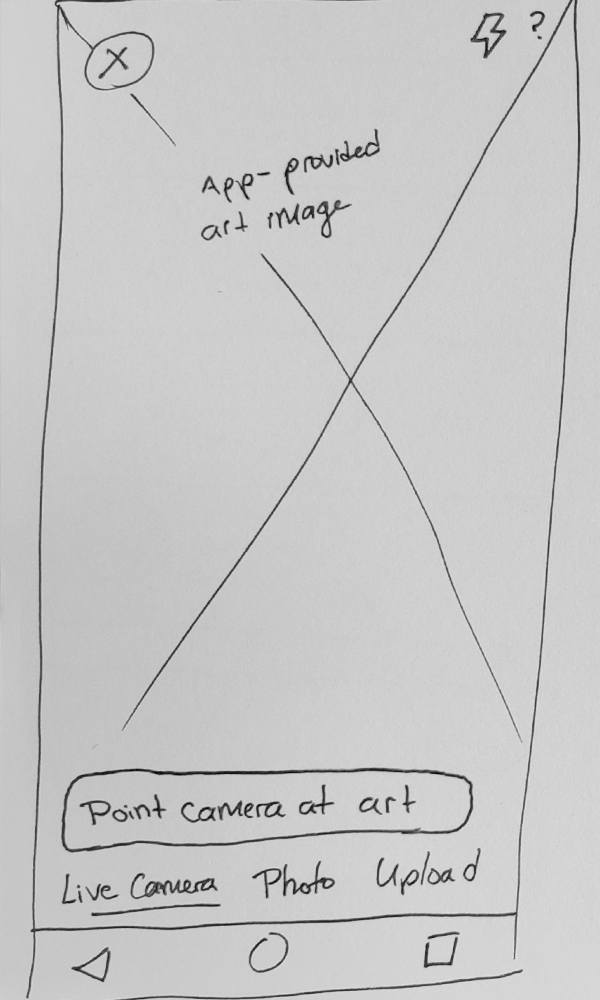 X
?
App-provided
art image
Point camera at art
Live Camera Photo Upload